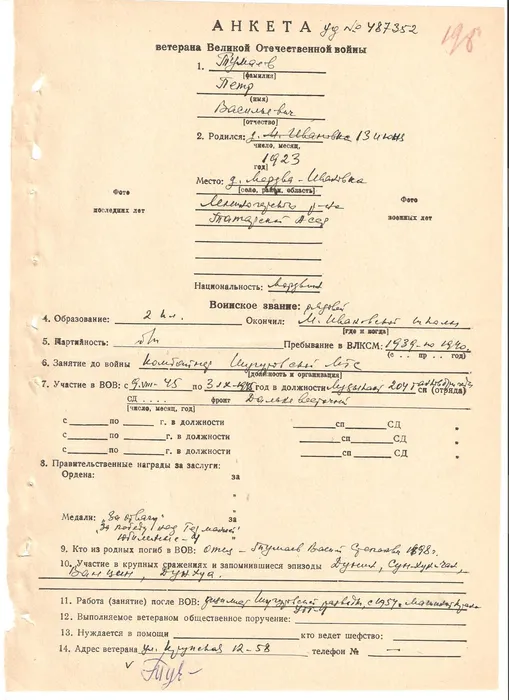 АНКЕТА уд № 487352
198
ветерана Великой Отечественной войны
1. Тумаев
[фамилия]
Петр
(имя)
Васильевич
[отчество]
2. Родился: д. М. Ивановка 13 июня
число, месяц,
1923
год]
Место: д. Мордва-Ивановка
[село, район, область]
Лениногорского р-на
Татарской АССР
Фото
последних лет
Фото
военных лет
Национальность: мордвин
Воинское звание: рядовой
4. Образование: 2 кл. Окончил: М. Ивановской школы
[где и когда]
5. Партийность: б/п Пребывание в ВЛКСМ: 1939 по 1940
(с . . пр . . год)
6. Занятие до войны комбайнер Шугуровской МТС
[должность и организация]
7. Участие в ВОВ: с 9.VIII-45 по 3.IX-1945 год в должности 204 сп (отряда)
СД . . . . фронт Дальневосточной
[число, месяц, год]
с по г. в должности сп СД „
с по г. в должности сп СД „
с по г. в должности сп СД „
8. Правительственные награды за заслуги:
Ордена: за
„
„
Медали: „За отвагу" за
„За победу над Германией" „
Юбилейные-4 „
9. Кто из родных погиб в ВОВ: Отец - Тумаев Василий 1898г.
10. Участие в крупных сражениях и запомнившиеся эпизоды
11. Работа (занятие) после ВОВ: Шугуровской с 1957
12. Выполняемое ветераном общественное поручение:
13. Нуждается в помощи кто ведет шефство:
14. Адрес ветерана ул. 12-58 телефон № —